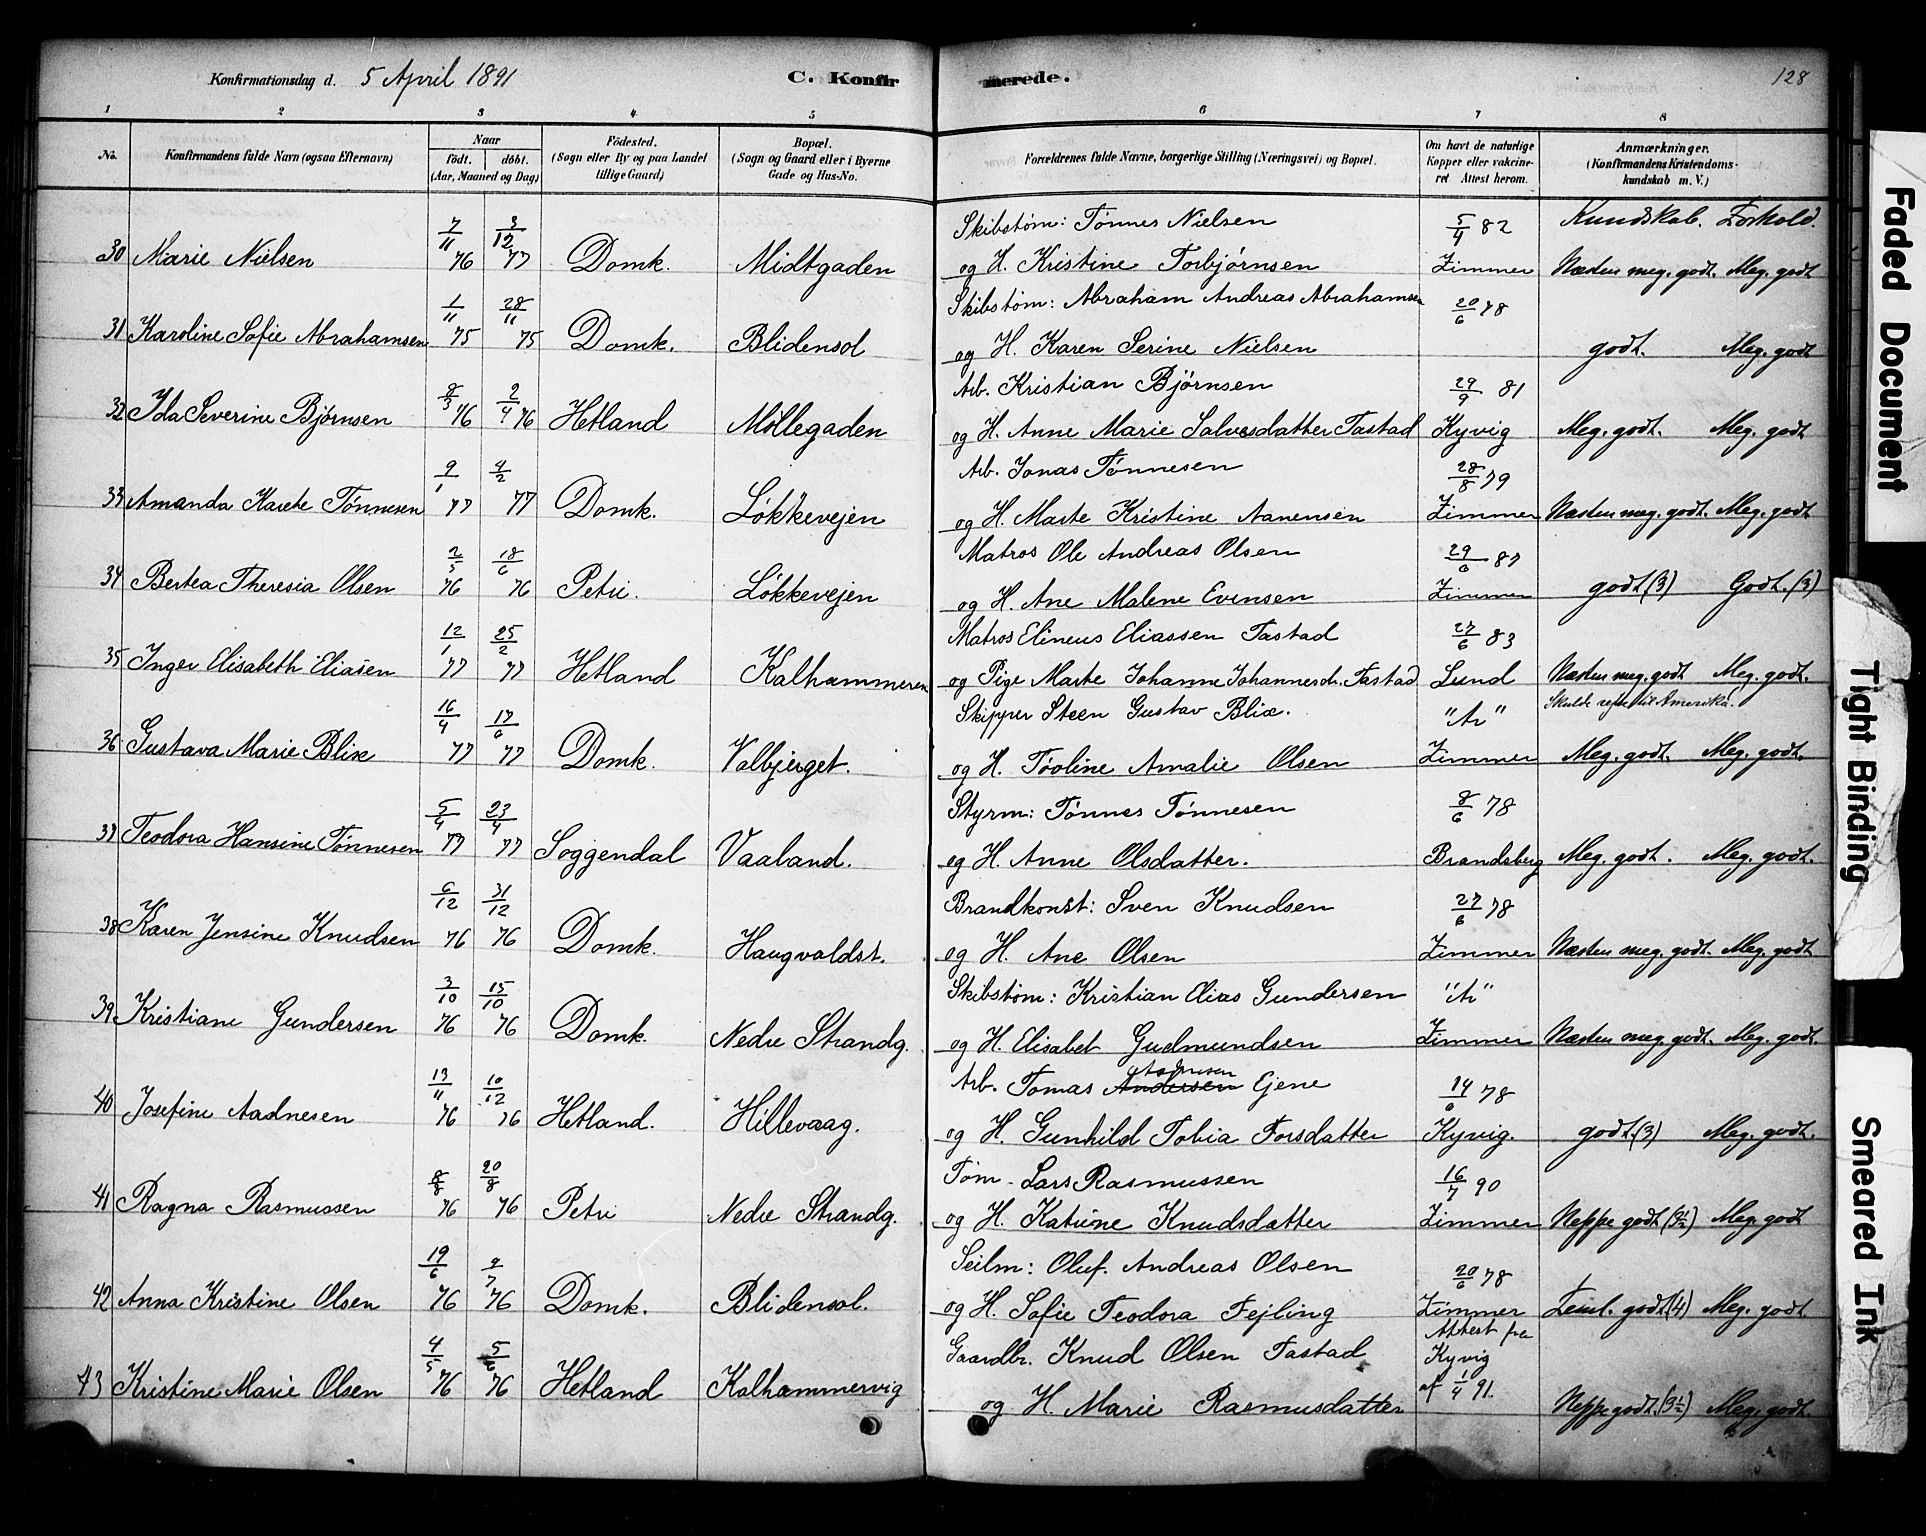 Konfirmationsdag d. 5 April 1891 C. Konfirmerede. 128
1 2 3 4 5 6 7 8
No. Konfirmandens fulde Navn (ogsaa Efternavn) Naar födt. döbt. (Aar, Maaned og Dag) Födested. (Sogn eller By og paa Landet tillige Gaard) Bopæl. (Sogn og Gaard eller i Byerne Gade og Hus-No.) Forældrenes fulde Navne, borgerlige Stilling (Næringsvei) og Bopæl. Om havt de naturlige Kopper eller vakcineret Attest herom. Anmærkninger. (Konfirmandens Kristendomskundskab m. V.)
7/11 3/12 Skibstøm: Tønnes Nielsen 5/4 82 Kundskab. Forhold.
30 Marie Nielsen 76 77 Domk. Midtgaden og H. Kristine Torbjørnsen Zimmer Næsten meg. godt. Meg. godt
1/11 28/11 Skibstøm: Abraham Andreas Abrahamsen 20/6 78
31 Karoline Sofie Abrahamsen 75 75 Domk. Blidensol og H. Karen Serine Nielsen godt. Meg. godt
8/3 2/4 Arb. Kristian Bjørnsen 29/9 81
32 Ida Severine Bjørnsen 76 76 Hetland Møllegaden og H. Anne Marie Salvesdatter Tastad Kyvig Meg. godt. Meg. godt
9/1 4/2 Arb. Jonas Tønnesen 28/8 79
33 Amanda Karete Tønnesen 77 77 Domk. Løkkevejen og H. Marte Kristine Aanensen Zimmer Næsten meg. godt. Meg. godt
2/5 18/6 Matros Ole Andreas Olsen 29/6 87
34 Bertea Theresia Olsen 76 76 Petri. Løkkevejen og H. Ane Malene Evensen Zimmer godt (3) Godt. (3)
12/1 25/2 Matros Elineus Eliassen Tastad 27/6 83
35 Inger Elisabeth Eliasen 77 77 Hetland Kalhammeren og Pige Marte Johanne Johannesdr. Tastad Lund Næsten meg. godt Meg. godt.
16/4 17/6 Skipper Steen Gustav Blix. "Ar" Skulde rejse til Amerika.
36 Gustava Marie Blix 77 77 Domk. Valbjerget. og H. Tøoline Amalie Olsen Zimmer Meg. godt. Meg. godt.
5/4 23/4 Styrm: Tønnes Tønnesen 8/6 78
37 Teodora Hansine Tønnesen 77 77 Soggendal Vaaland. og H. Anne Olsdatter. Brandsberg Meg. godt. Meg. godt.
6/12 31/12 Brandkonst: Sven Knudsen 27/6 78
38 Karen Jensine Knudsen 76 76 Domk. Haugvaldst. og H. Ane Olsen Zimmer Næsten meg. godt. Meg. godt
3/10 15/10 Skibstøm: Kristian Elias Gundersen "Ar"
39 Kristiane Gundersen 76 76 Domk. Nedre Strandg. og H. Elisabet Gudmundsen Zimmer Næsten meg. godt. Meg. godt.
Aadnesen
13/11 10/12 Arb. Tomas Andersen Gjene 14/6 78
40 Josefine Aadnesen 76 76 Hetland. Hillevaag. og H. Gunhild Tobia Torsdatter Kyvig. godt. (3) Meg. godt.
8/8 20/8 Tøm. Lars Rasmussen 16/7 90
41 Ragna Rasmussen 76 76 Petri Nedre Strandg. og H. Katrine Knudsdatter Zimmer Neppe godt (3½) Meg. godt
19/6 9/7 Seilm: Oluf. Andreas Olsen 20/6 78
42 Anna Kristine Olsen 76 76 Domk. Blidensol. og H. Sofie Teodora Fejling Zimmer Teml. godt (4) Meg. godt.
4/5 5/6 Gaardbr. Knud Olsen Tastad Attest fra Kyvig
43 Kristine Marie Olsen 76 76 Hetland Kalhammervig og H. Marie Rasmusdatter af 1/4 91. Neppe godt. (3½) Meg. godt.
Faded Document
Tight Binding
Smeared Ink